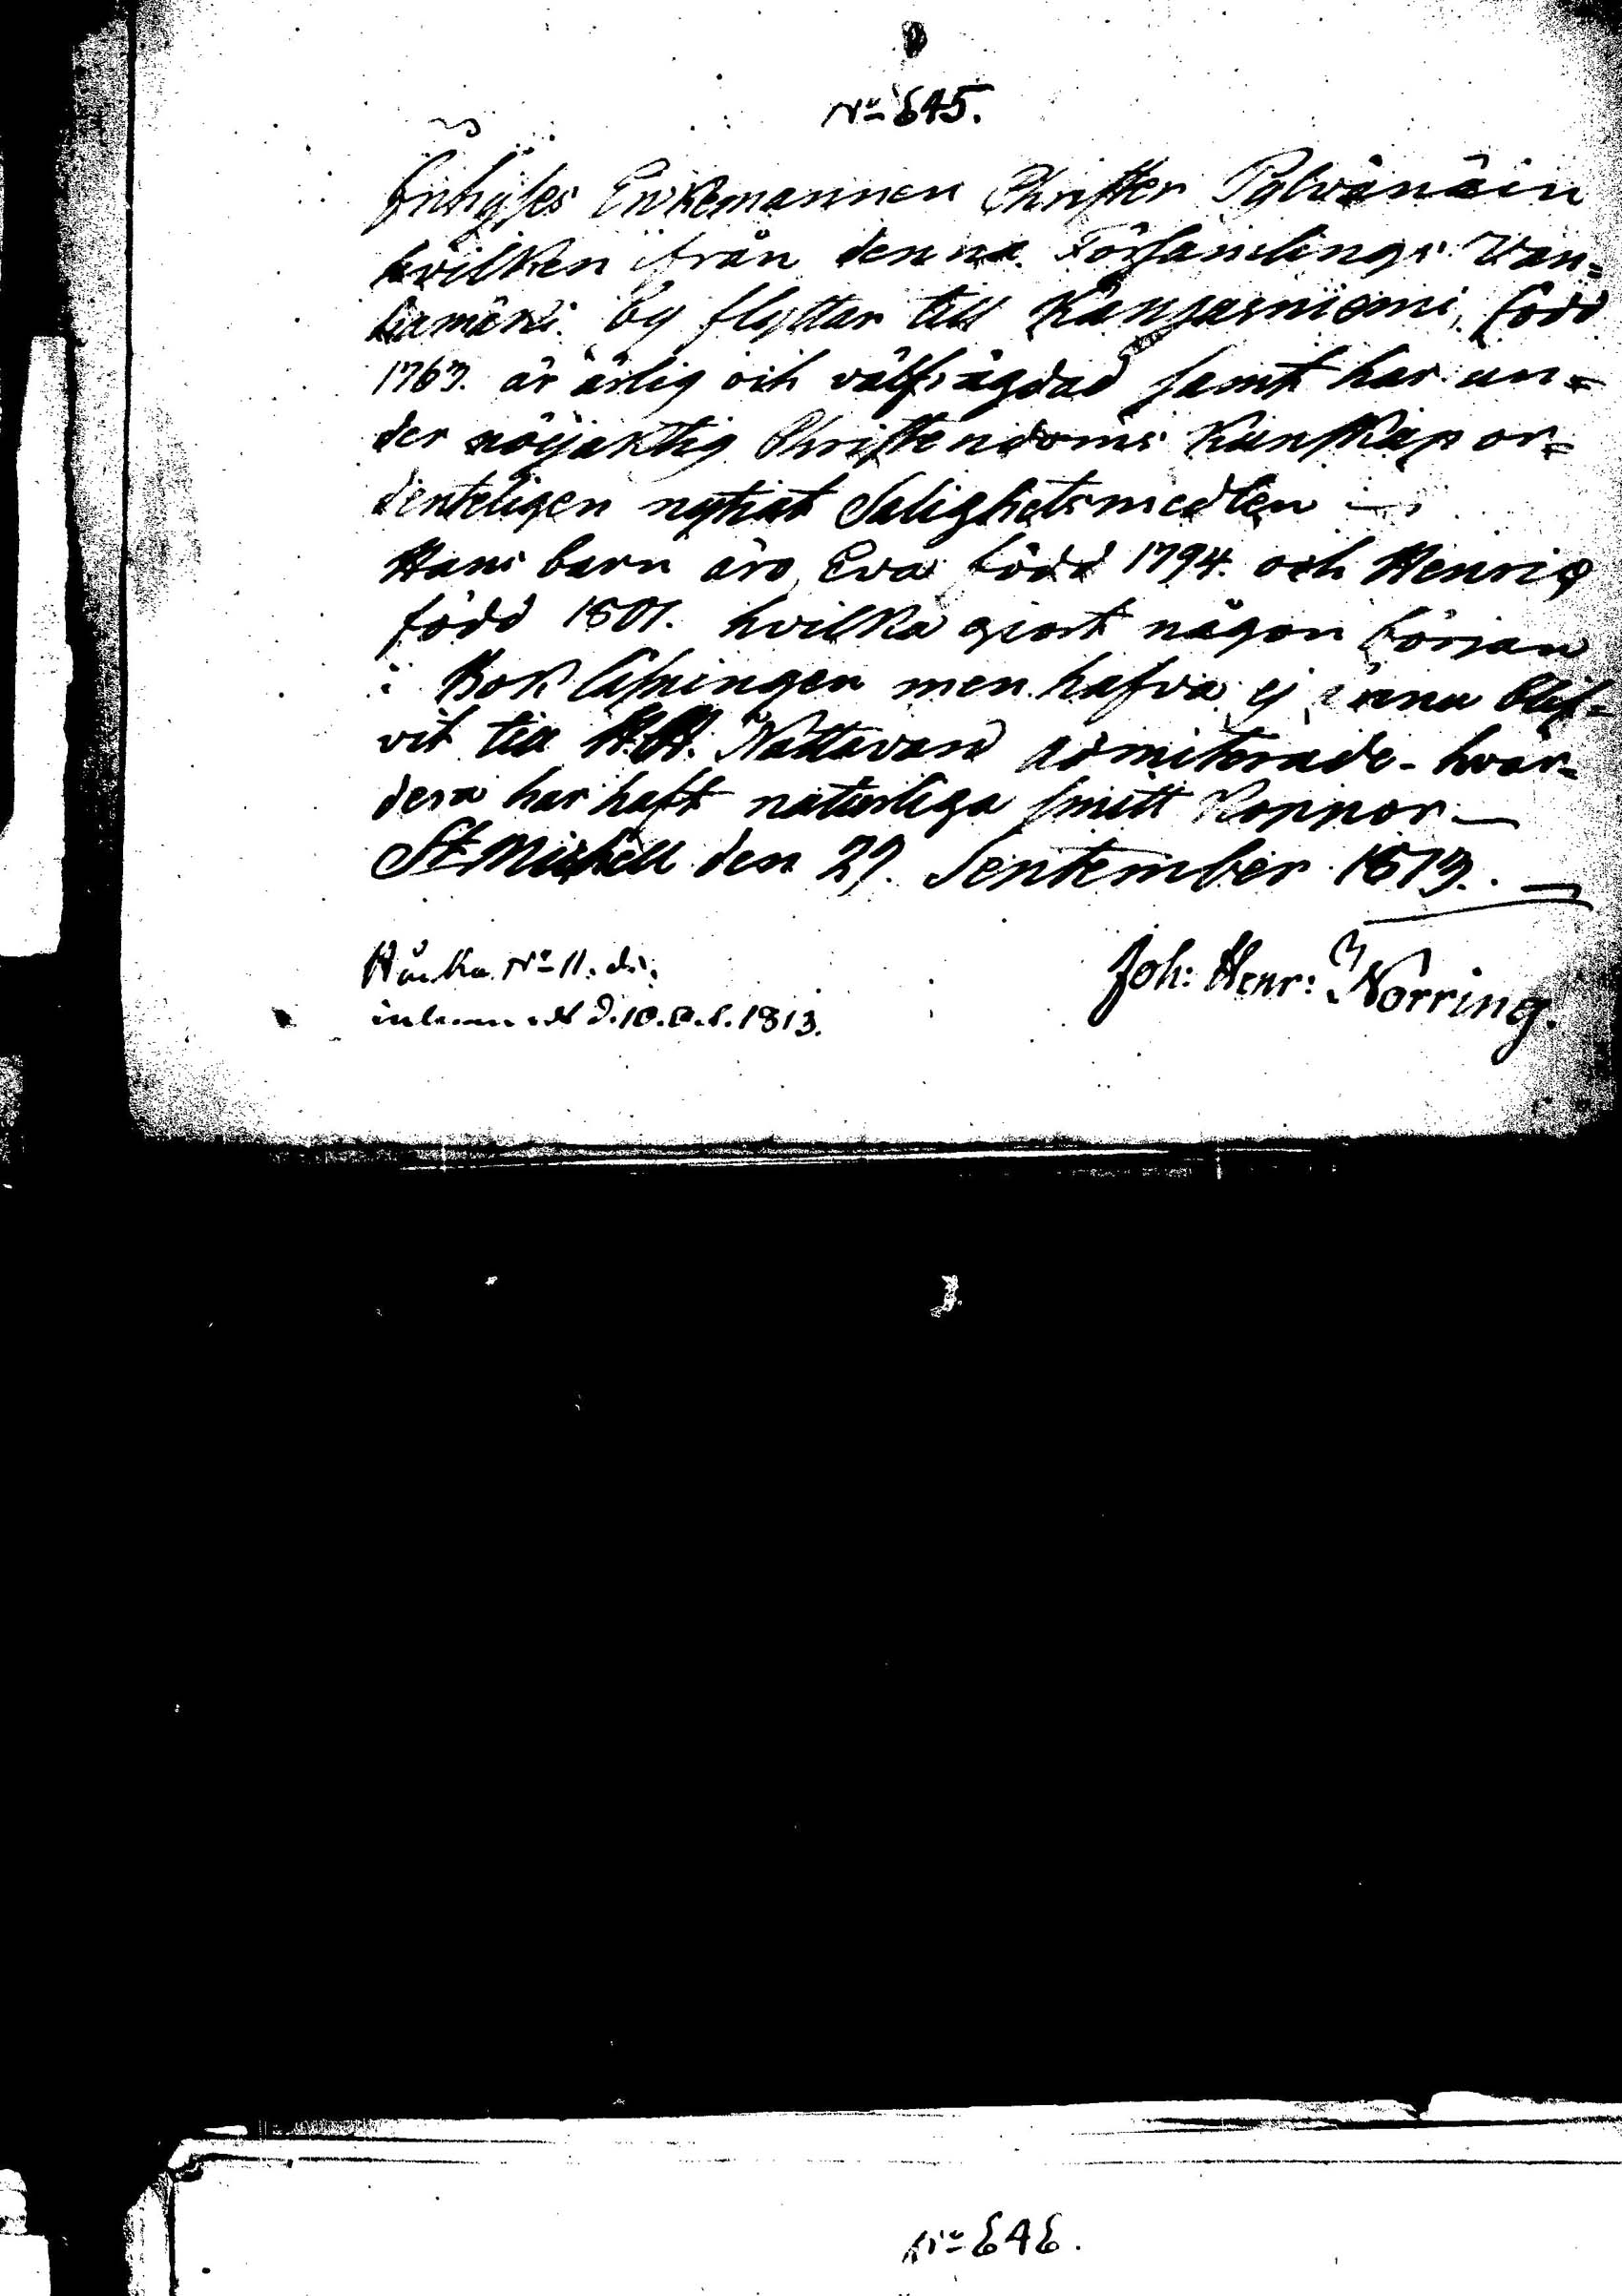 No 645.
Inhyses Enkemannen Christer Pylvänäin
hvilken från denna Församlings Van=
hamäki by flyttar till Kangasniemi, född
1767. är ärlig och välfrägdad samt har un=
der nöyaktig Christendoms Kunskap or=
denteligen nytjat Salighetsmedlen —
Hans barn äro, Eva född 1794. och Henric
född 1801. hvilka giort någon början
i Bok läsningen men hafva ej ännu blif=
vit till H.H. Nattavard admiterade - hvar=
dera har haft naturliga smitt Koppor —
St Michell den 29. September 1813. —
Joh: Henr: Norring.
No 11.
d. 10. 1813.
No 646.